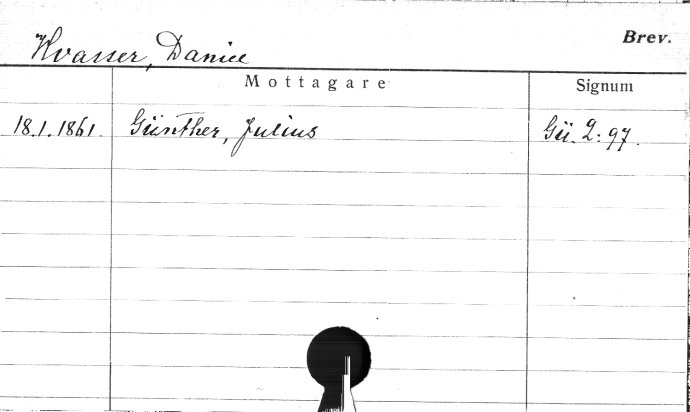 Brev.
Kvasser, Daniel
Mottagare Signum
18.1.1861. Günther, Julius Gü. 2:97